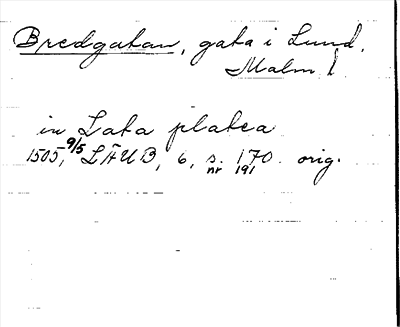 Bredgatan, gata i Lund,
Malm l
in Lata platea
1505, 9/5 LÄUB, 6, s. 170. orig.
nr 191